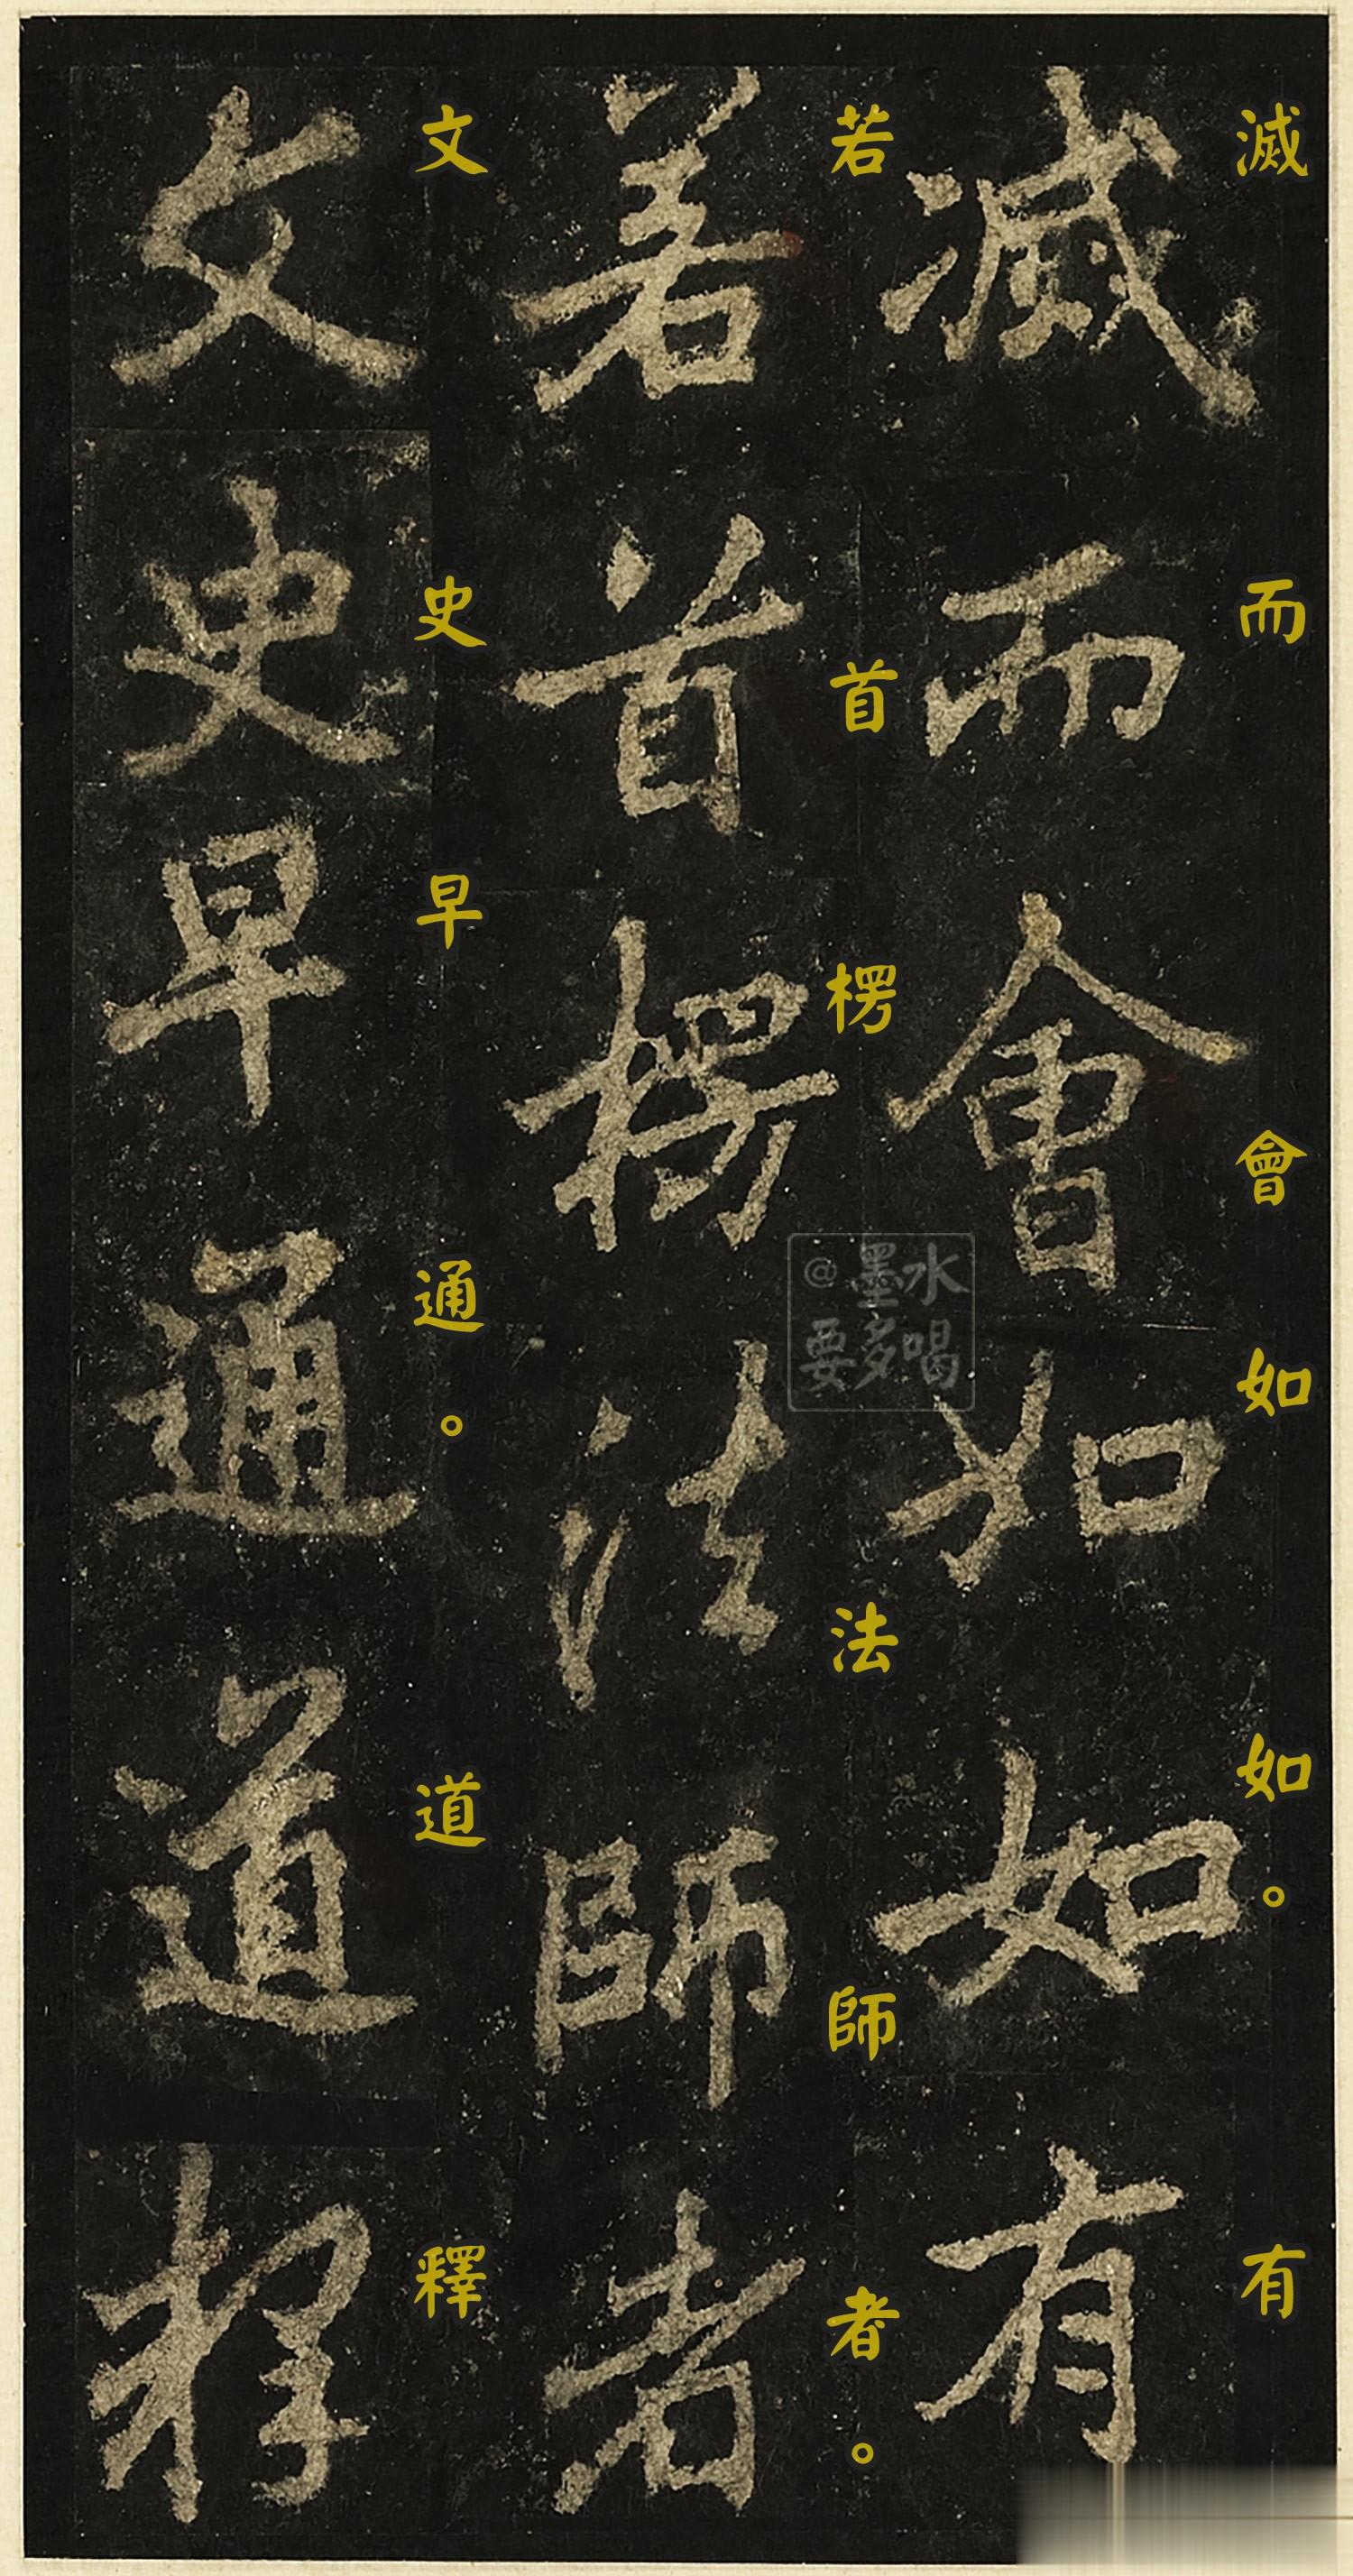 滅而會如如。有
若首楞法師者。
文史早通。道釋
滅而會如如有
若首楞法師者
文史早通道釋
@墨水
要多喝